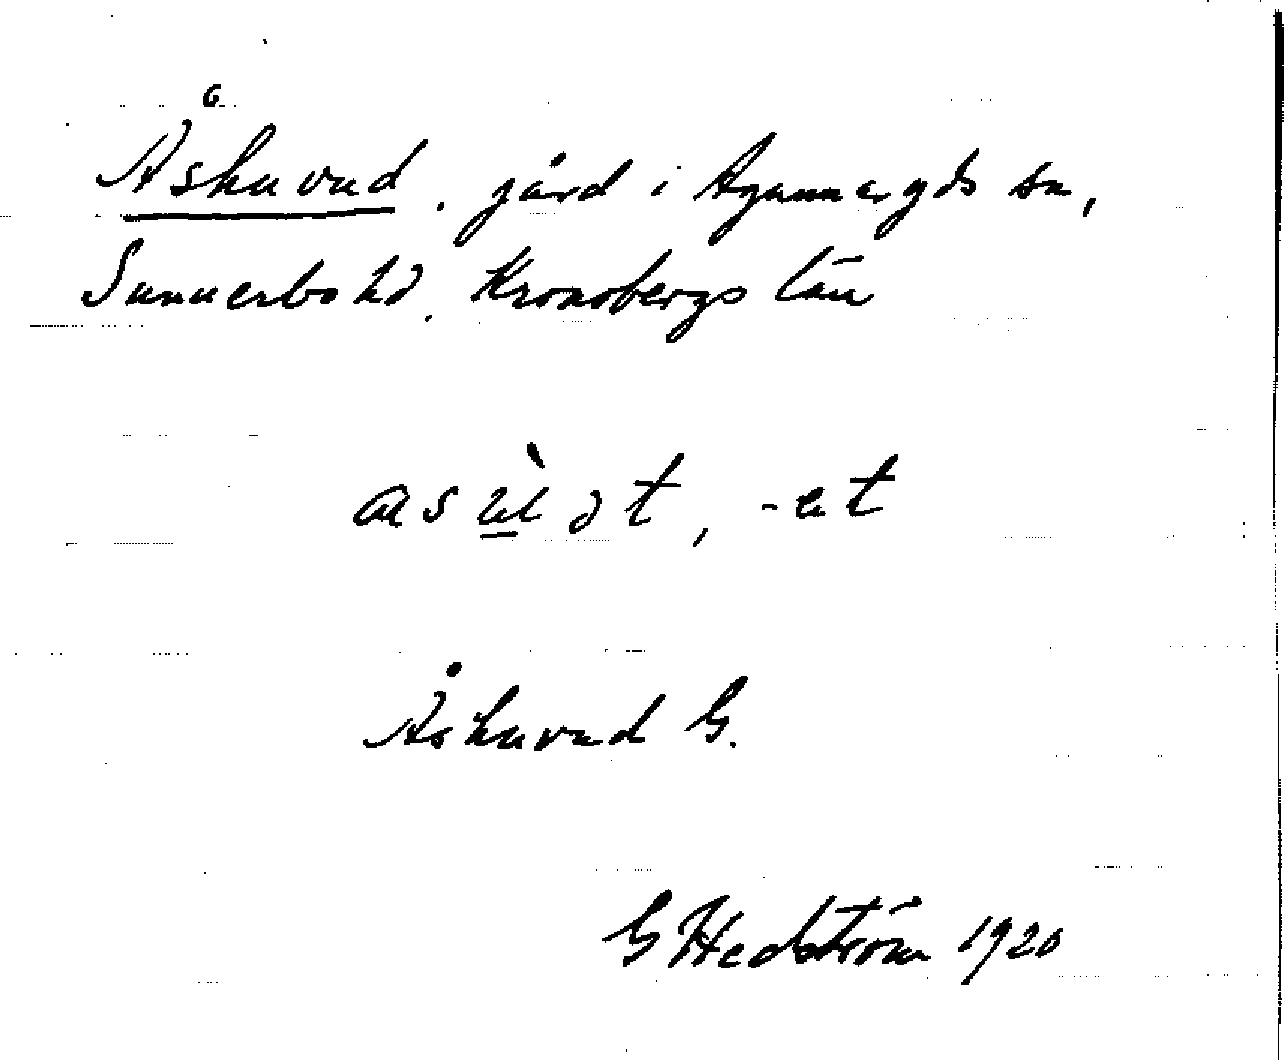 Åshuvud, gård i Agunnaryds sn,
Sunnerbo hd. Kronobergs län
Åshuvud G.
G Hedström 1920